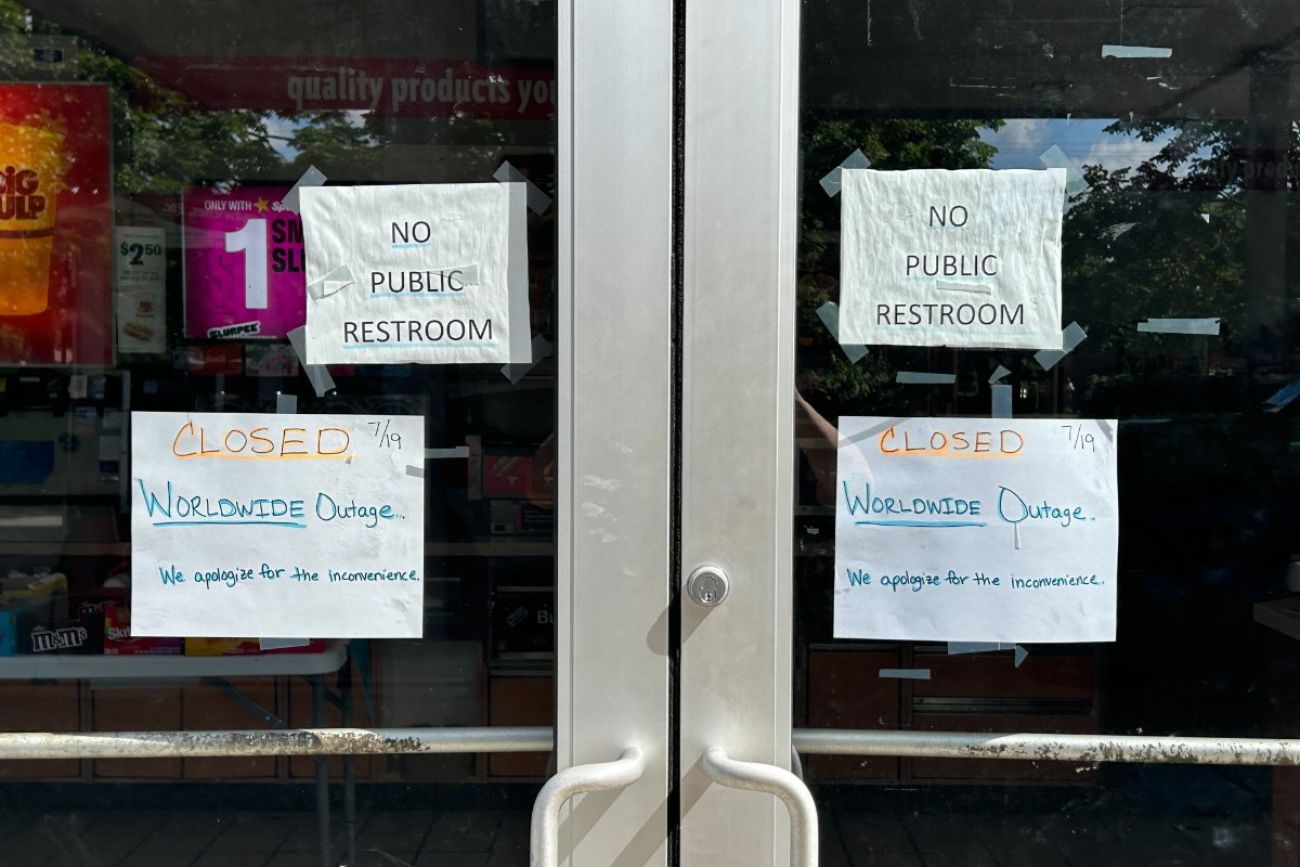 quality products you
BIG
GULP
$2.50
ONLY WITH
1
SLURPEE
NO
PUBLIC
RESTROOM
NO
PUBLIC
RESTROOM
CLOSED 7/19
WORLDWIDE Outage...
We apologize for the inconvenience.
CLOSED 7/19
WORLDWIDE Outage.
We apologize for the inconvenience.
m&m's